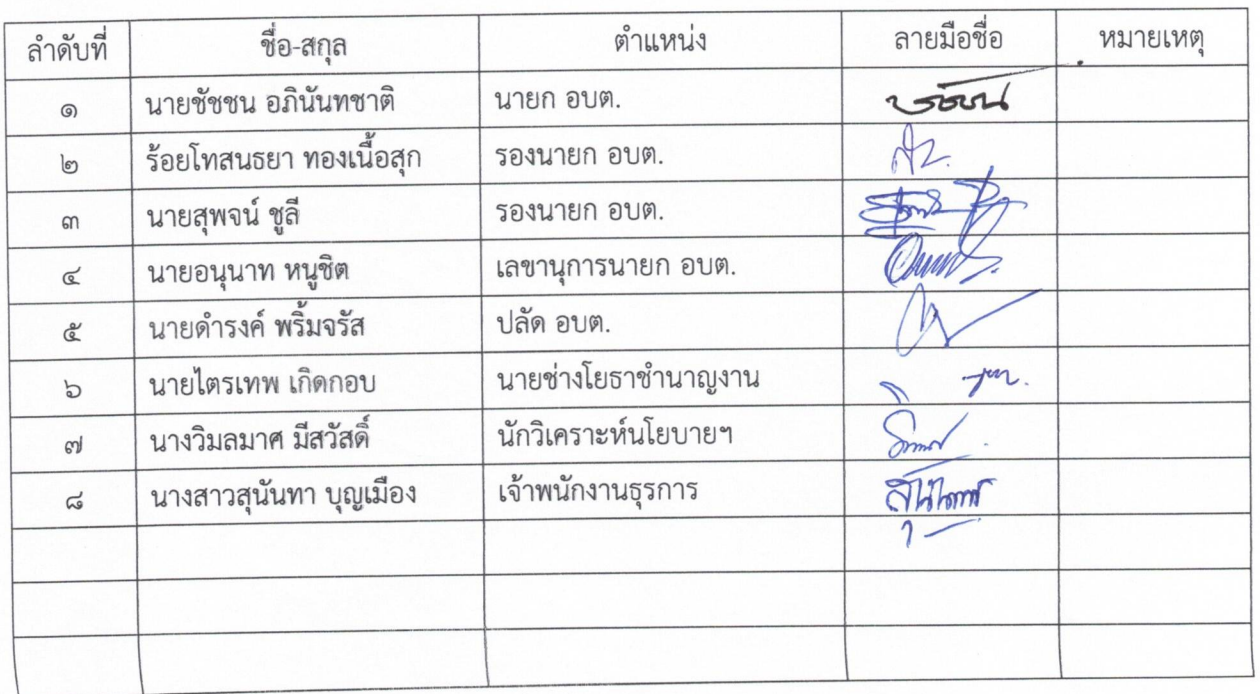 ลำดับที่ ชื่อ-สกุล ตำแหน่ง ลายมือชื่อ หมายเหตุ
๑ นายชัชชน อภินันทชาติ นายก อบต. ชัชชน
๒ ร้อยโทสนธยา ทองเนื้อสุก รองนายก อบต.
๓ นายสุพจน์ ชูลี รองนายก อบต.
๔ นายอนุนาท หนูชิต เลขานุการนายก อบต.
๕ นายดำรงค์ พริ้มจรัส ปลัด อบต.
๖ นายไตรเทพ เกิดกอบ นายช่างโยธาชำนาญงาน
๗ นางวิมลมาศ มีสวัสดิ์ นักวิเคราะห์นโยบายฯ
๘ นางสาวสุนันทา บุญเมือง เจ้าพนักงานธุรการ